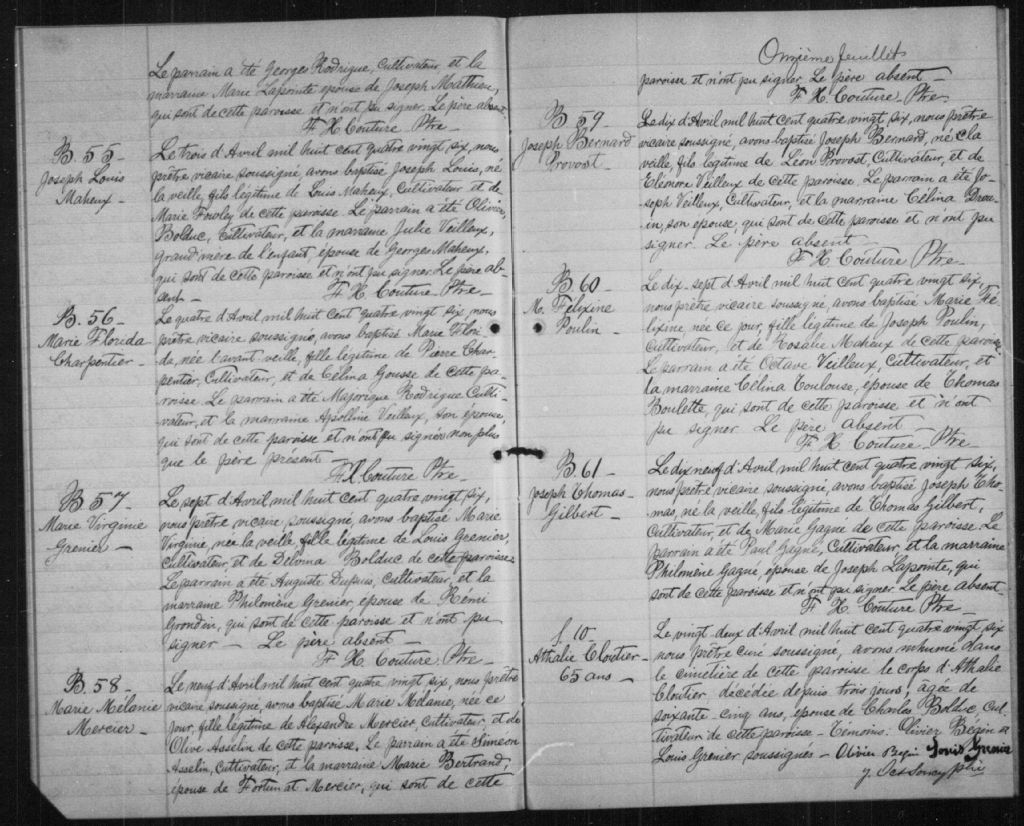 Le parrain a été Georges Rodrigue, cultivateur, et la
marraine Marie Lapointe épouse de Joseph Mathieu,
qui sont de cette paroisse et n'ont pu signer. Le père absent.
F X. Couture Ptre —
B. 55 —
Joseph Louis
Maheux —
Le trois d'Avril mil huit cent quatre vingt six, nous
prêtre vicaire soussigné, avons baptisé Joseph Louis, né
la veille, fils légitime de Louis Maheux, Cultivateur et de
Marie Fowley de cette paroisse. Le parrain a été Olivier
Bolduc, cultivateur, et la marraine Julie Veilleux,
grand'mère de l'enfant, épouse de Georges Maheux,
qui sont de cette paroisse et n'ont pu signer. Le père ab-
sent — F X. Couture Ptre —
B. 56 —
Marie Florida
Charpentier —
Le quatre d'Avril mil huit cent quatre vingt six, nous
prêtre vicaire soussigné, avons baptisé Marie Flori
da, née l'avant veille, fille légitime de Pierre Char
pentier, Cultivateur, et de Célina Gousse de cette pa-
roisse. Le parrain a été Majorique Rodrigue Culti-
vateur, et la marraine Apolline Veilleux, son épouse,
qui sont de cette paroisse et n'ont pu signer non plus
que le père présent
F X. Couture Ptre —
B. 57 —
Marie Virginie
Grenier —
Le sept d'Avril mil huit cent quatre vingt six,
nous prêtre vicaire soussigné, avons baptisé Marie
Virginie, née la veille, fille légitime de Louis Grenier,
Cultivateur et de Delvina Bolduc de cette paroisse
Le parrain a été Auguste Dupuis, cultivateur, et la
marraine Philomène Grenier, épouse de Rémi
Grondin, qui sont de cette paroisse et n'ont pu
signer — Le père absent —
F X. Couture Ptre —
B. 58 —
Marie Mélanie
Mercier —
Le neuf d'Avril mil huit cent quatre vingt six, nous prêtre
vicaire soussigné, avons baptisé Marie Mélanie, née ce
jour, fille légitime de Alexandre Mercier, cultivateur et de
Olive Asselin de cette paroisse. Le parrain a été Siméon
Asselin, Cultivateur, et la marraine Marie Bertrand,
épouse de Fortunat Mercier, qui sont de cette
Onzième feuillet
paroisse et n'ont pu signer. Le père absent —
F X. Couture Ptre —
B 59 —
Joseph Bernard
Provost —
Le dix d'Avril mil huit cent quatre vingt six, nous prêtre
vicaire soussigné, avons baptisé Joseph Bernard, né la
veille, fils légitime de Léon Provost, Cultivateur, et de
Elémore Veilleux de cette paroisse. Le parrain a été Jo-
seph Veilleux, Cultivateur, et la marraine Célina Drou-
in, son épouse, qui sont de cette paroisse et n'ont pu
signer. Le père absent —
F X Couture Ptre —
B. 60 —
M. Félixine
Poulin —
Le dix sept d'Avril mil huit cent quatre vingt six
nous prêtre vicaire soussigné, avons baptisé Marie Fé
lixine née ce jour, fille légitime de Joseph Poulin,
Cultivateur, et de Rosalie Maheux de cette paroisse.
Le parrain a été Octave Veilleux, Cultivateur, et
la marraine Célina Toulouse, épouse de Thomas
Boulette, qui sont de cette paroisse et n'ont
pu signer Le père absent —
F X. Couture Ptre
B. 61 —
Joseph Thomas —
Gilbert —
Le dix neuf d'Avril mil huit cent quatre vingt six,
nous prêtre vicaire soussigné, avons baptisé Joseph Tho-
mas, né la veille, fils légitime de Thomas Gilbert,
Cultivateur, et de Marie Gagné de cette paroisse Le
parrain a été Paul Gagné, Cultivateur, et la marraine
Philomène Gagné, épouse de Joseph Lapointe, qui
sont de cette paroisse et n'ont pu signer. Le père absent
F X. Couture Ptre —
S. 10 —
Athalie Cloutier —
65 ans —
Le vingt deux d'Avril mil huit cent quatre vingt six
nous prêtre curé soussigné, avons inhumé dans
le cimetière de cette paroisse le corps d'Athalie
Cloutier décédée depuis trois jours, âgée de
soixante cinq ans, épouse de Charles Bolduc Cul
tivateur de cette paroisse — Témoins: Olivier Bégin &
Louis Grenier soussignés — Olivier Begin Louis Grenier